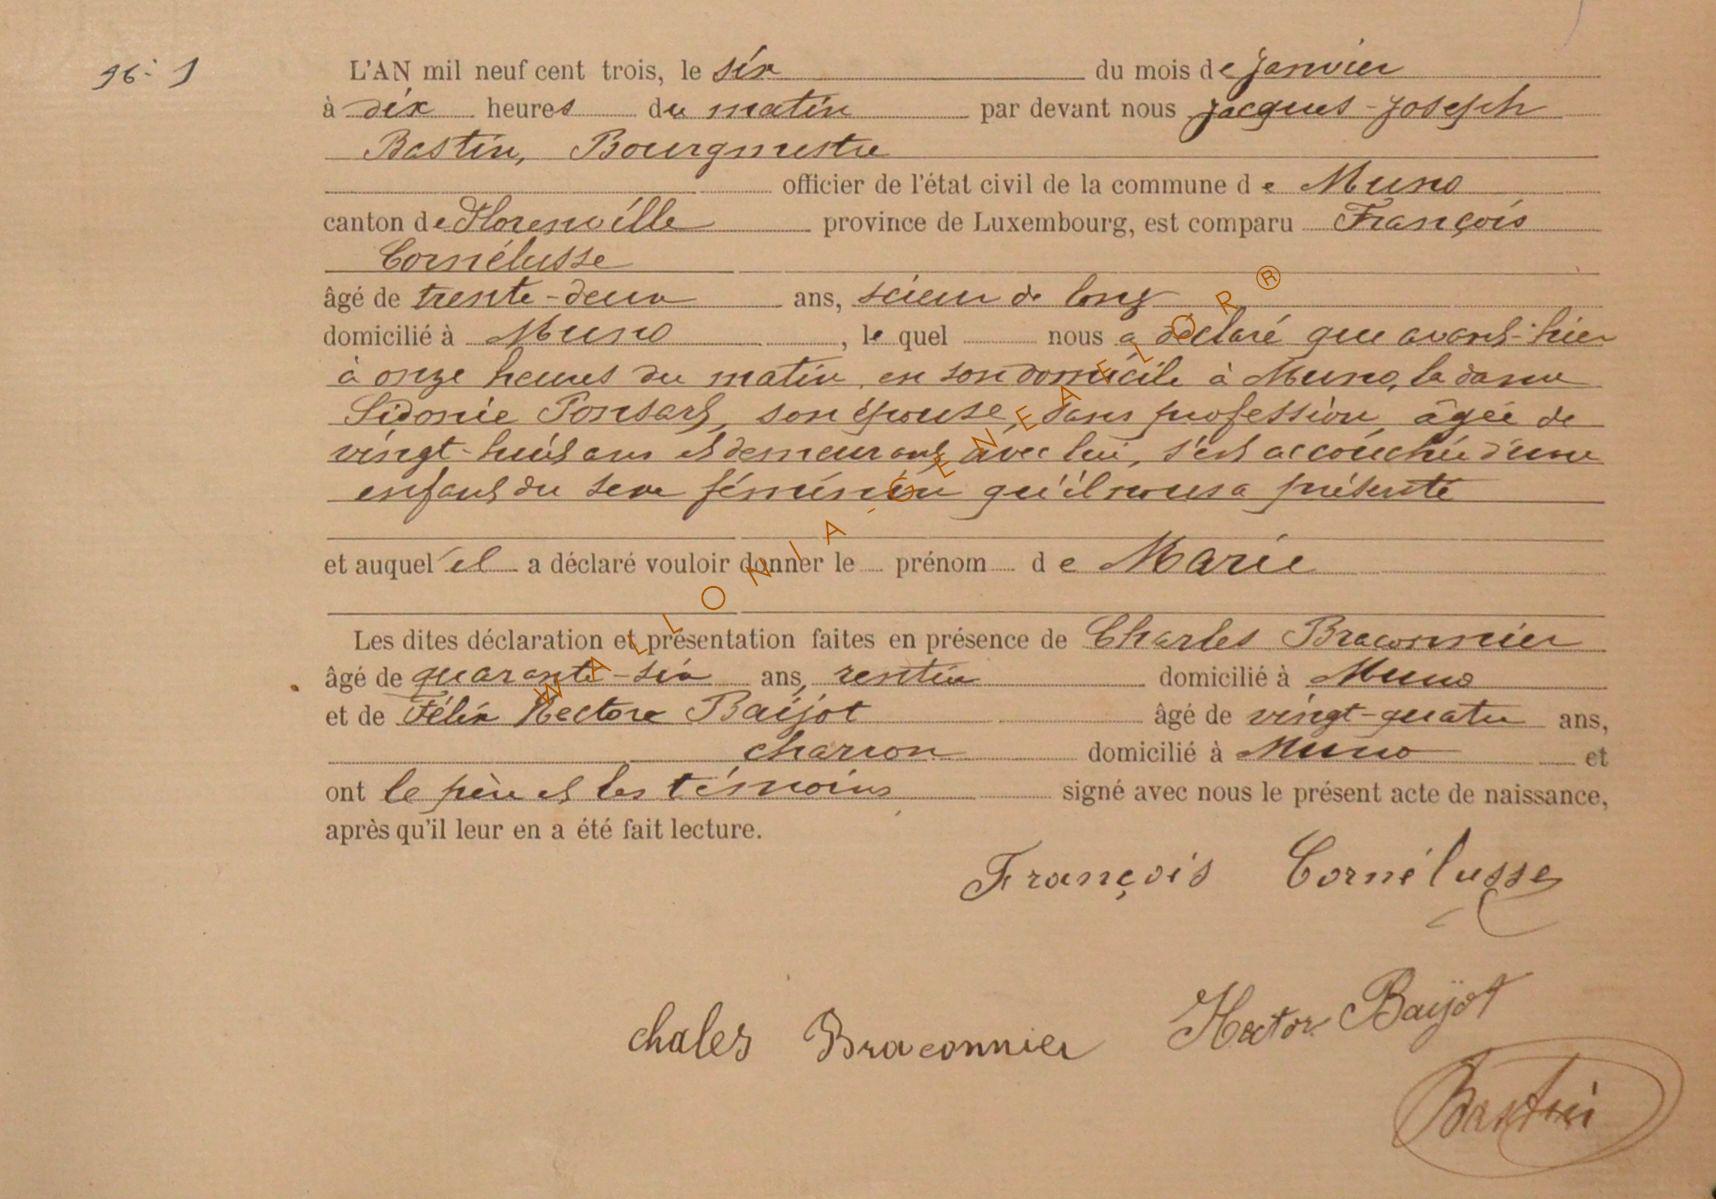 N°. 1
L'AN mil neuf cent trois, le six du mois de janvier
à dix heures du matin par devant nous Jacques-Joseph
Bastin, Bourgmestre
officier de l'état civil de la commune de Muno
canton de Florenville province de Luxembourg, est comparu François
Cornélusse
âgé de trente-deux ans, scieur de long
domicilié à Muno, lequel nous a déclaré que avant-hier
à onze heures du matin, en son domicile à Muno, la dame
Sidonie Ponsart, son épouse, sans profession, âgée de
vingt-huit ans et demeurant avec lui, s'est accouchée d'une
enfant du sexe féminin qu'il nous a présenté
et auquel il a déclaré vouloir donner le prénom de Marie
Les dites déclaration et présentation faites en présence de Charles Braconnier
âgé de quarante-six ans, rentier domicilié à Muno
et de Félix Hectore Baijot âgé de vingt-quatre ans,
charron domicilié à Muno et
ont le père et les témoins signé avec nous le présent acte de naissance,
après qu'il leur en a été fait lecture.
François Cornélusse
chales Braconnier Hector Baijot
Bastin
WALLONIA-GENEALOR®